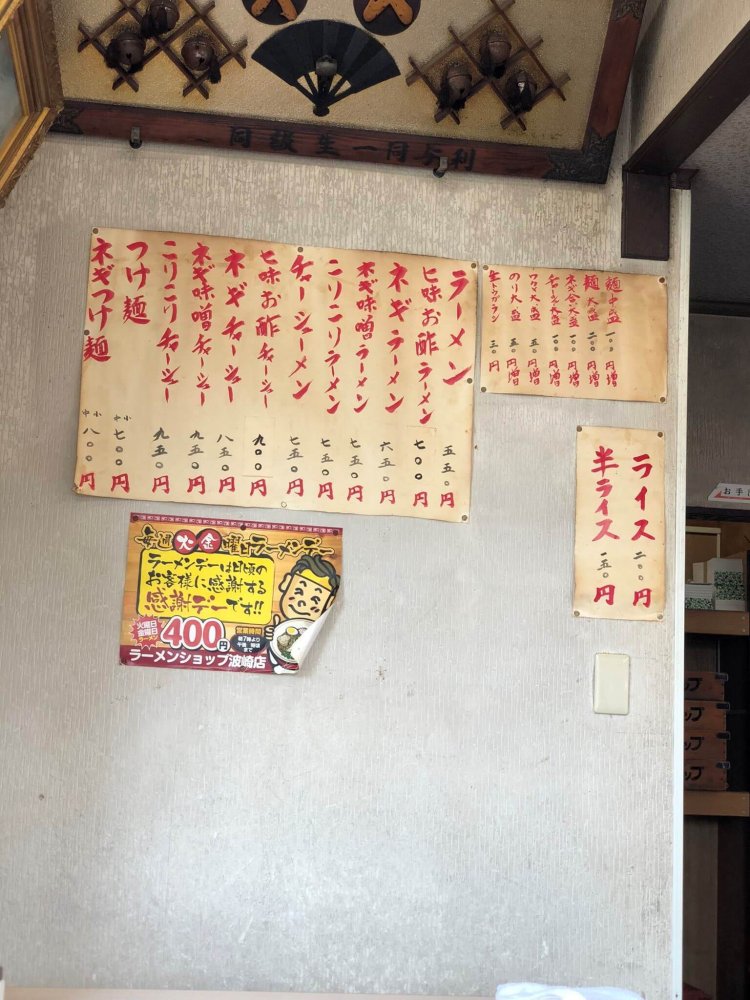 同級生一同与利
ラーメン 五五〇円
七味お酢ラーメン 七〇〇円
ネギラーメン 六五〇円
ネギ味噌ラーメン 七五〇円
こりこりラーメン 七五〇円
チャーシューメン 七五〇円
七味お酢チャーシュー 九〇〇円
ネギチャーシュー 八五〇円
ネギ味噌チャーシュー 九五〇円
こりこりチャーシュー 九五〇円
つけ麺 中小 七〇〇円
ネギつけ麺 中小 八〇〇円
麺中盛 一〇〇円増
麺大盛 二〇〇円増
ネギ大盛 一〇〇円増
チャーシュー大盛 一〇〇円増
ワカメ大盛 五〇円増
のり大盛 五〇円増
生トウガラシ 三〇円
ライス 二〇〇円
半ライス 一五〇円
毎週火金曜日ラーメンデー
ラーメンデーは日頃の
お客様に感謝する
感謝デーです!!
火曜日
金曜日
ラーメン
400円
営業時間
朝7時より
ラーメンショップ波崎店
お手
ップ
ップ
ップ
ップ